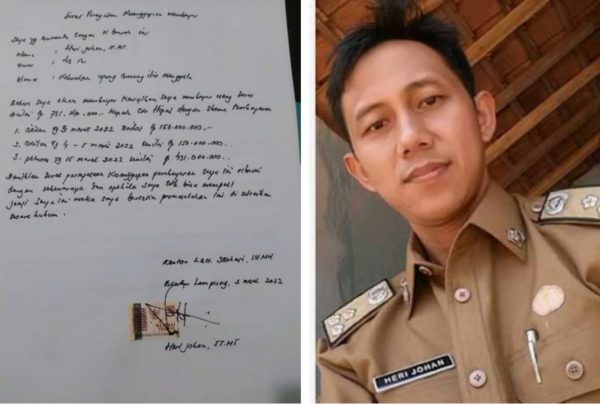 Surat Pernyataan Kesanggupan Membayar
Saya yg bertanda tangan di bawah ini
Nama : Heri Johan, ST.MT
Umur : 42 Th
Alamat : Kelurahan ujung Gunung Ilir Menggala
Bahwa saya akan membayar Kewajiban saya membayar uang beras
Kepada dengan skema Pembayaran
1. tgl 3 maret 2022 senilai Rp 150.000.000.-
2. tgl 4 - 5 maret 2022 senilai Rp 150.000.000..
3. tgl 15 maret 2022 senilai Rp 431.000.000..
Demikian surat pernyataan Kesanggupan pembayaran saya ini dibuat
dengan sebenarnya dan apabila saya tidak bisa menepati
janji saya ini maka saya bersedia permasalahan ini di selesaikan
secara hukum.
Kantor SH.MH
Lampung, 2 maret 2022
Heri Johan, ST.MT
HERI JOHAN